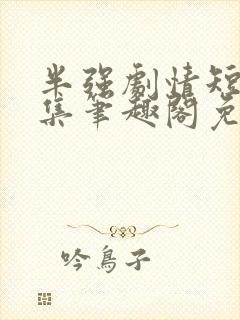 半强剧情短
集笔趣阁免
吟鸟子